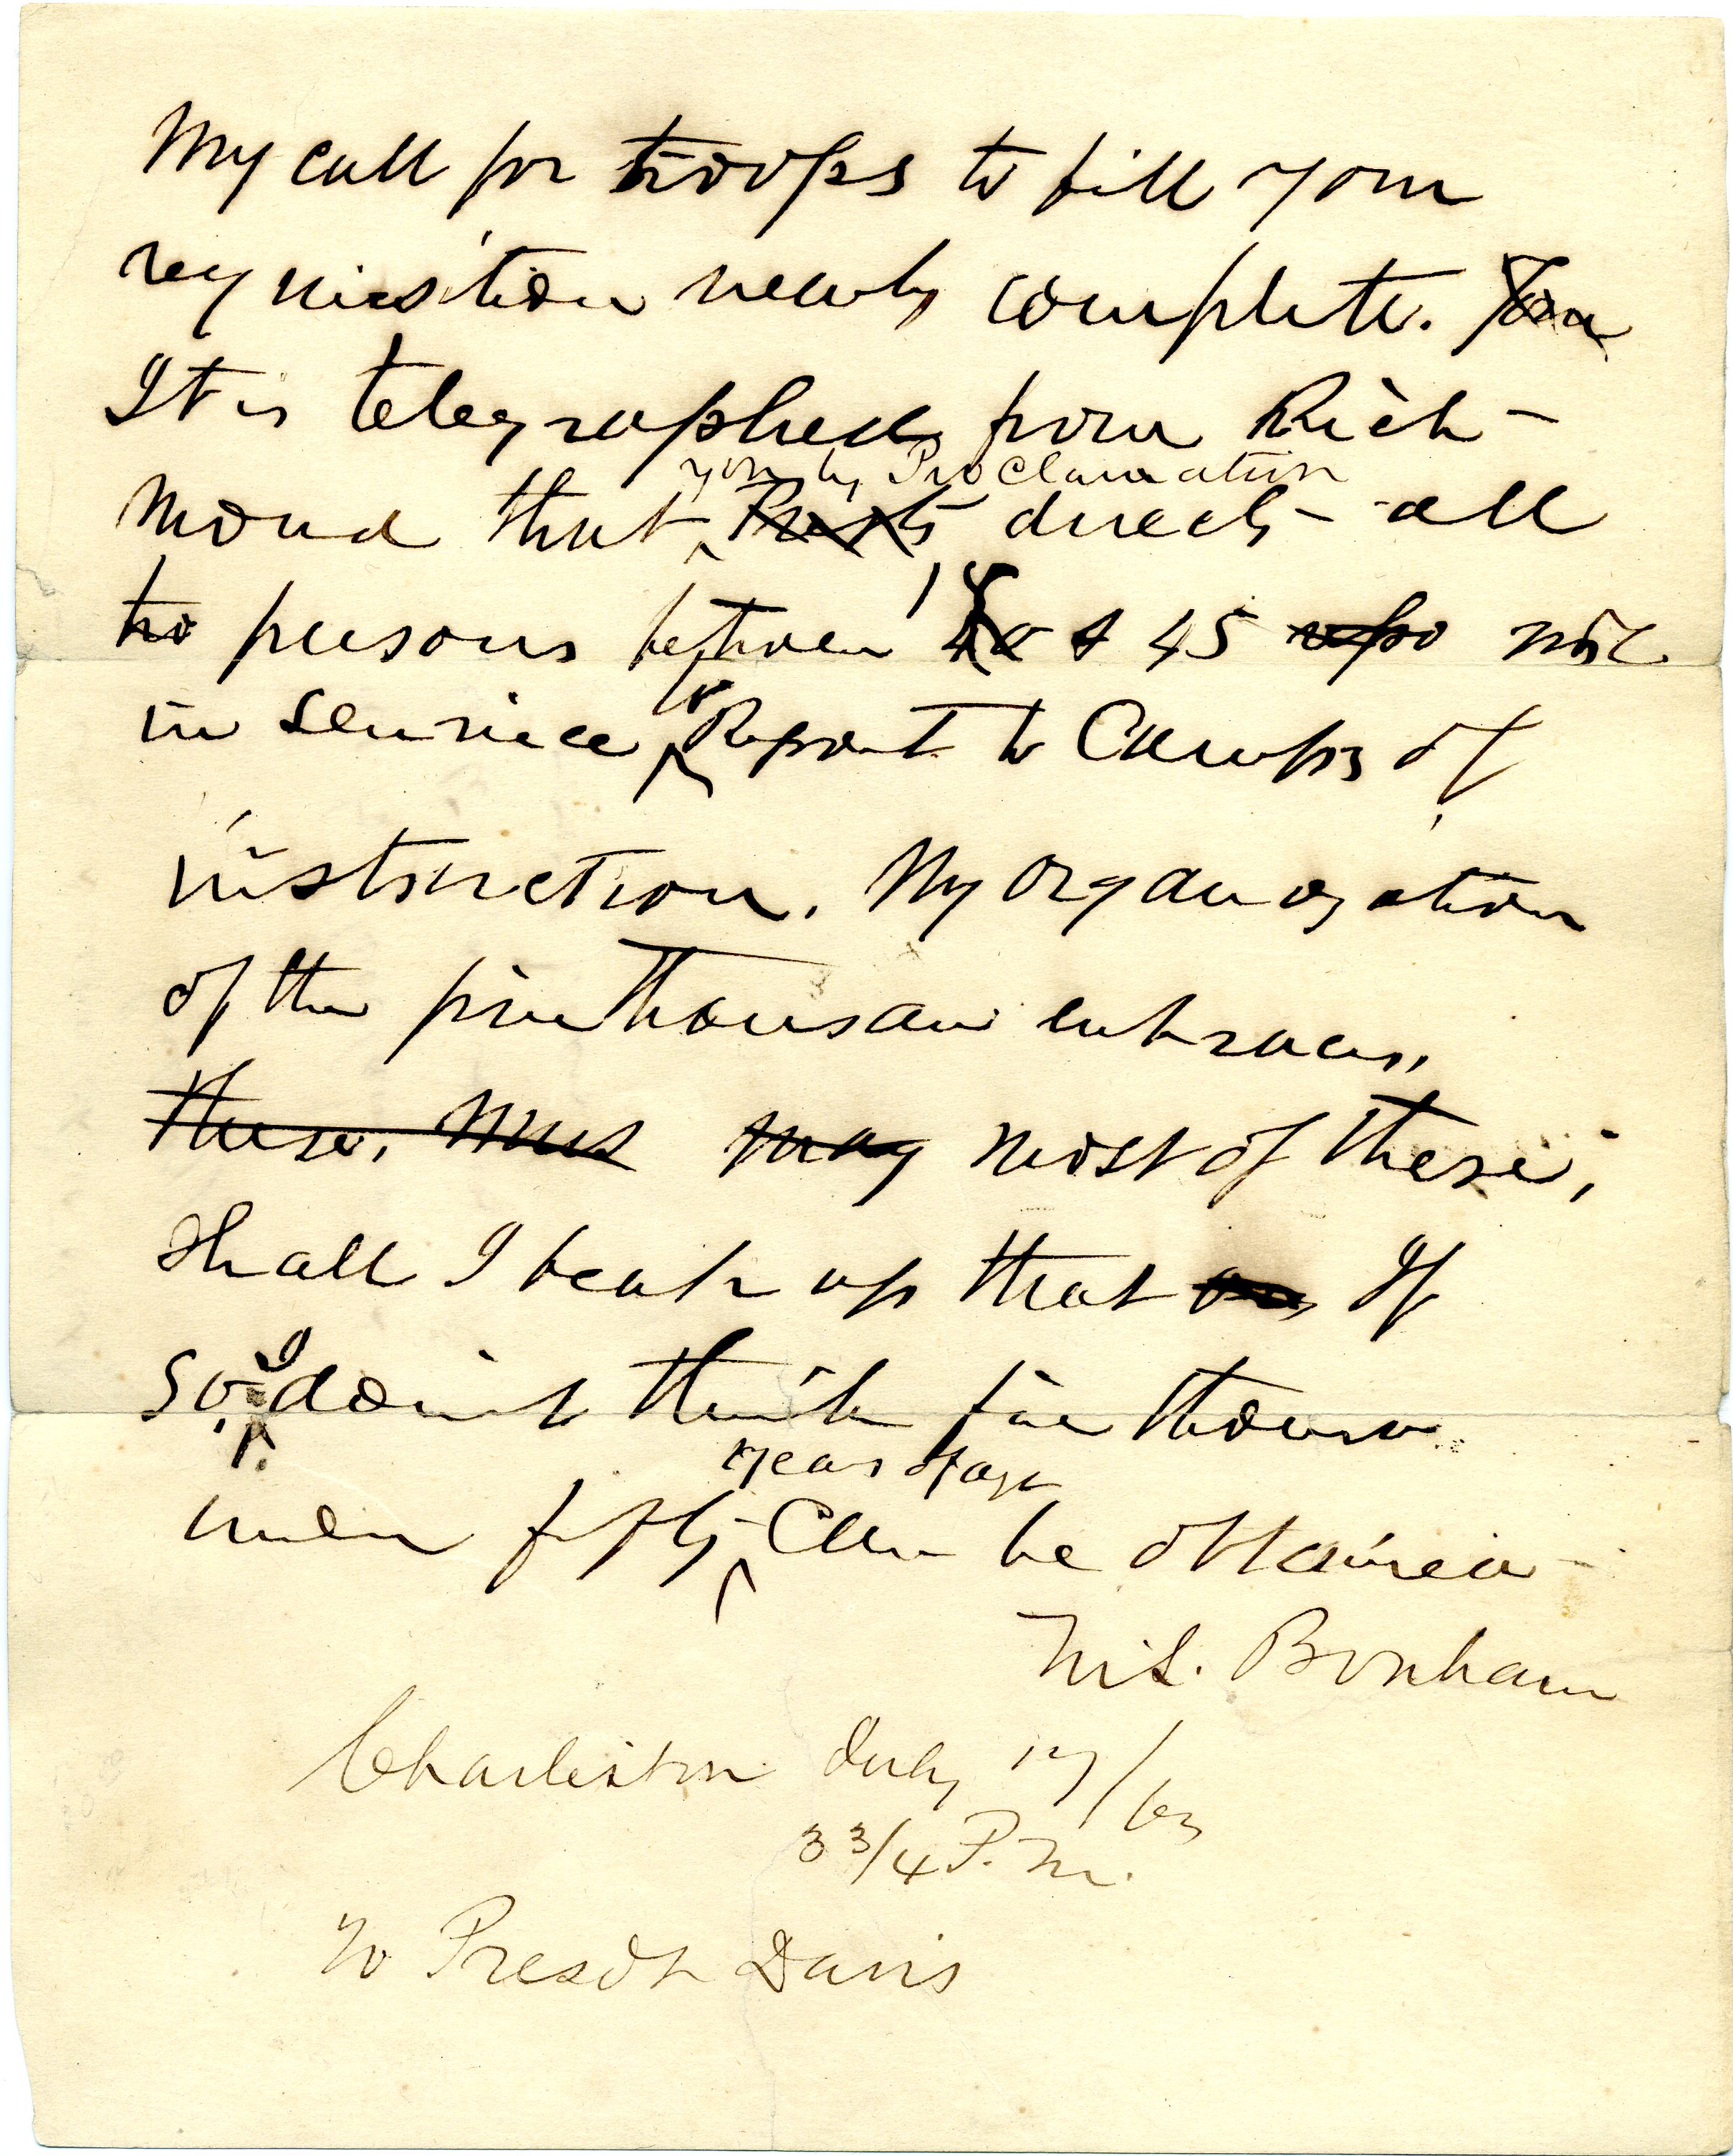 My call for troops to fill your
requisition nearly complete. You
It is telegraphed from Rich-
you by Proclamation
mond that directs all
to persons between 18 & 45 repo not
in service to Report to Camps of
instruction. My organization
of the five thousand embraces,
these. Mus may most of these;
shall I break up that If
so, I don't think five thousa
years of age
men fifty can be obtained -
M. L. Bonham
Charleston July 17/63
3 3/4 P. M.
To Presdt Davis